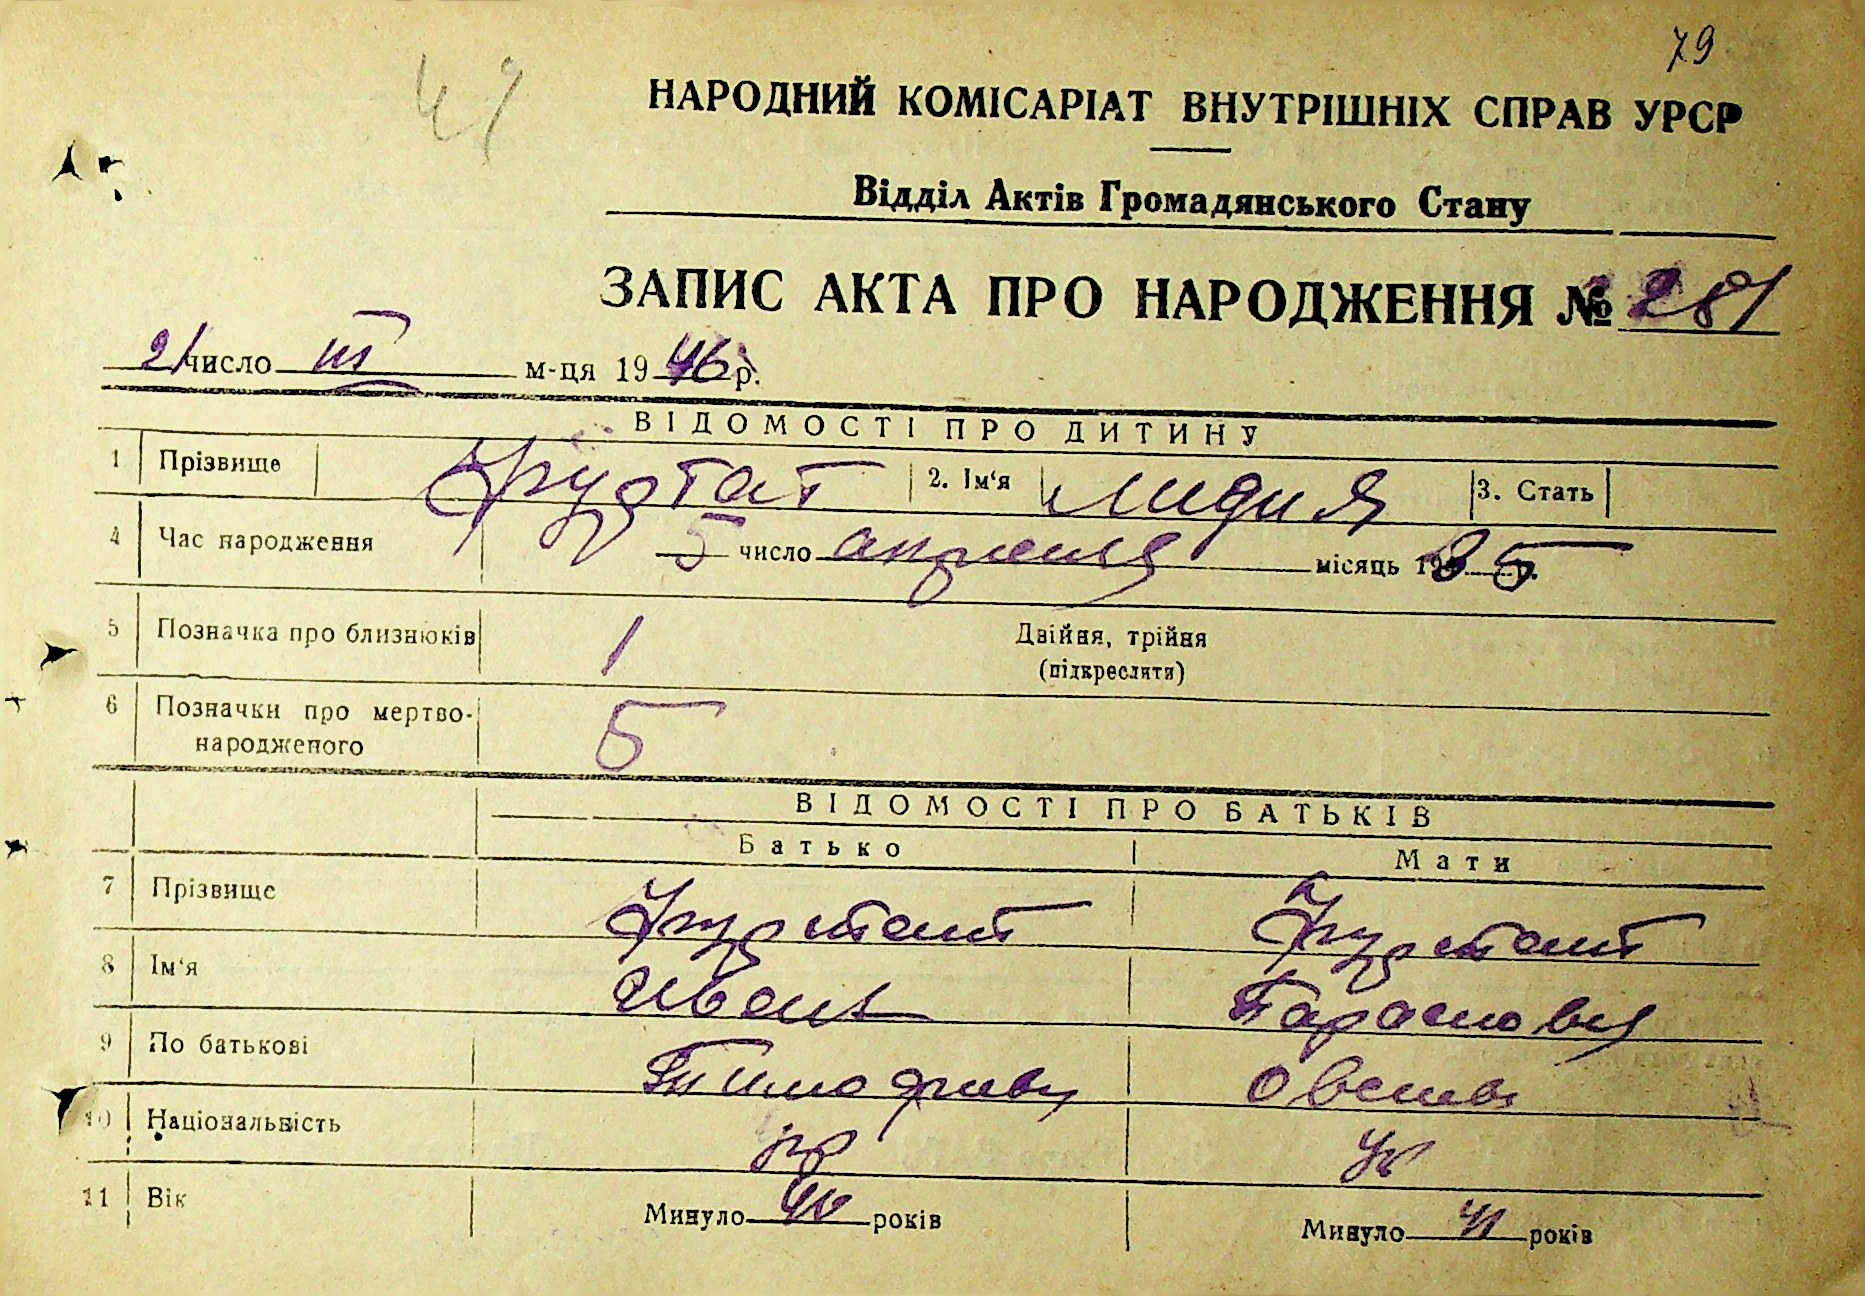 79
49
НАРОДНИЙ КОМІСАРІАТ ВНУТРІШНІХ СПРАВ УРСР
Відділ Актів Громадянського Стану
ЗАПИС АКТА ПРО НАРОДЖЕННЯ № 281
21 число III м-ця 1946 р.
ВІДОМОСТІ ПРО ДИТИНУ
1 Прізвище Фрудтат 2. Ім'я Лидия 3. Стать
4 Час народження 5 число апреля місяць 1935 р.
5 Позначка про близнюків 1 Двійня, трійня
(підкреслити)
6 Позначки про мертво-
народженого 5
ВІДОМОСТІ ПРО БАТЬКІВ
Батько Мати
7 Прізвище
8 Ім'я Иван
9 По батькові
10 Національність ук
11 Вік Минуло 40 років Минуло 41 років